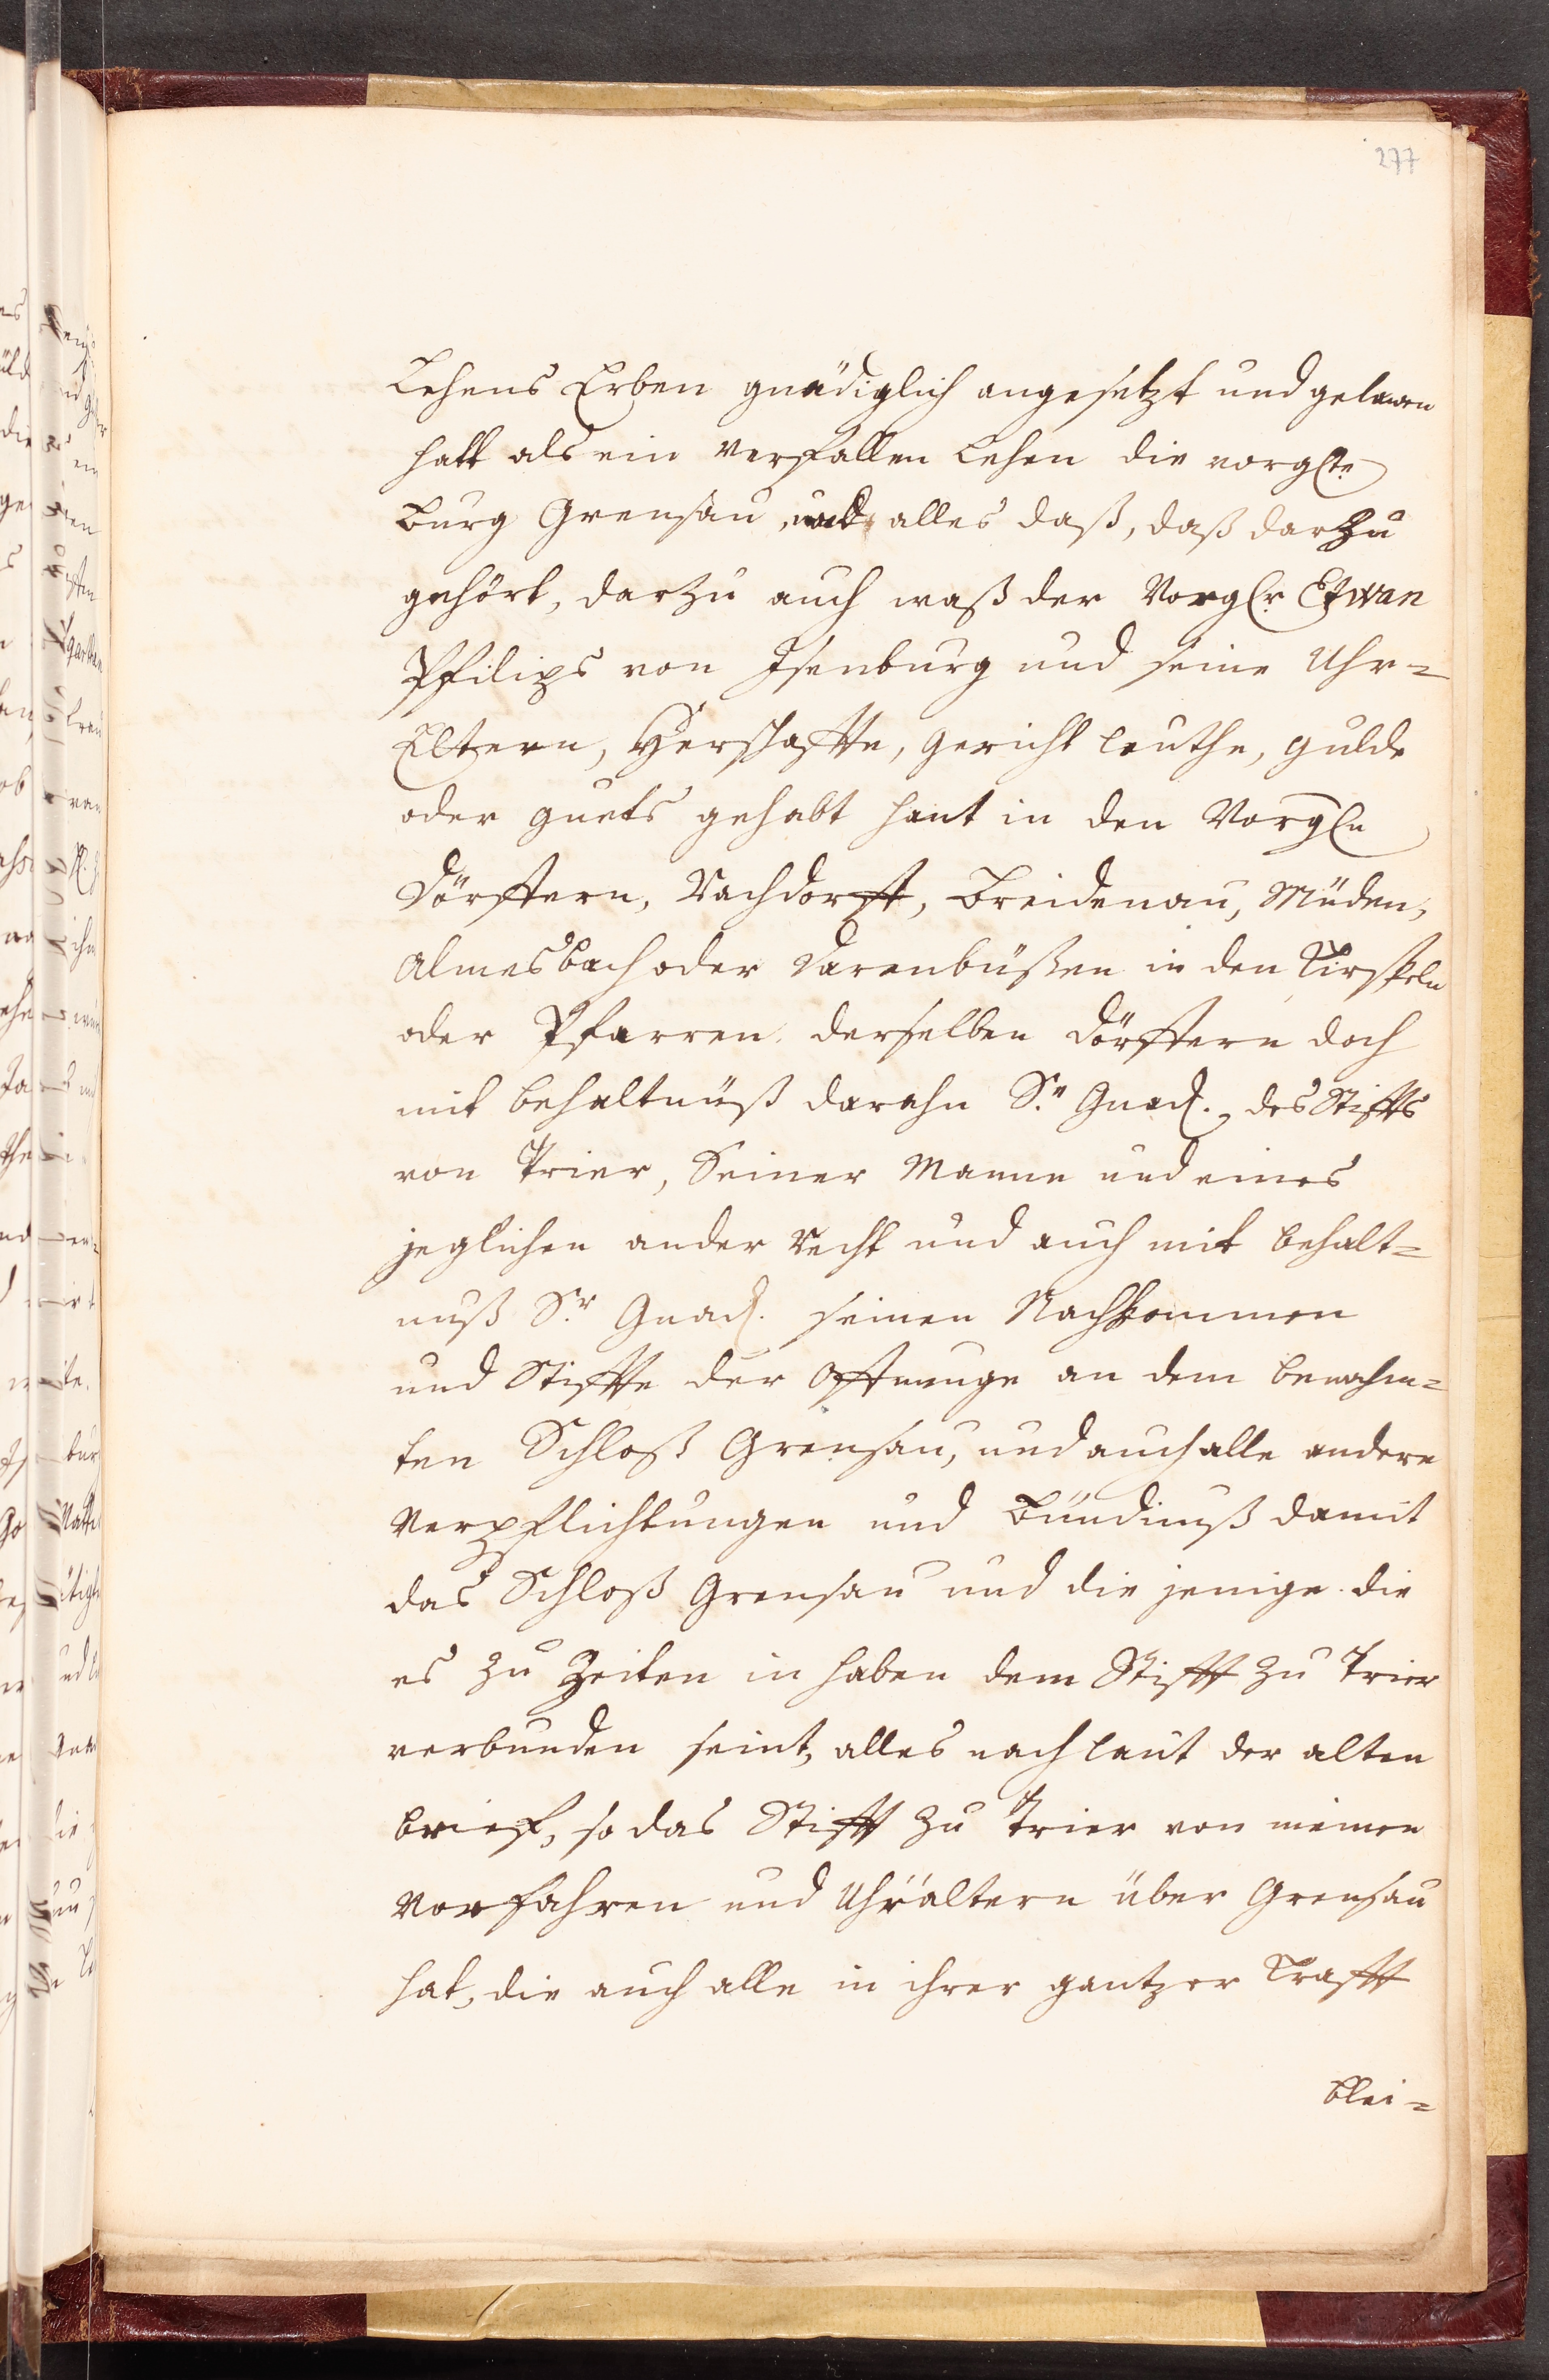 277
Lehens Erben gnädiglich angesetzt und gelauen
hatt als ein verfallen Lehen die vorgl.te
Burg Grensau, und alles daß, daß darzu
gehört, darzu auch waß der Vorgl.r Etwan
Pfilips von Isenburg und seine Uhr=
Eltern, Herschaffte, gericht leuthe, gulde
oder guets gehabt hant in den Vorgln
dörffern, Nachdorff, Breidenau, Müden,
Almesbach oder darenbüßen in den Kirspeln
oder Pfarren derselben dörffern doch
mit behaltnüß darahn Sr. Gnad. des Stiffts
von Trier, Seiner Manne und eines
jeglichen ander Recht und auch mit behalt=
nuß Sr. Gnad. seinen Nachkommen
und Stiffte der Offnunge an dem benahm=
ten Schloß Grensau, und auch alle andere
Verpflichtungen und Bündnuß damit
das Schloß Grensau und die jenige die
es zu Zeiten in haben dem Stifft zu Trier
verbunden seint, alles nach laut der alten
brief, so das Stifft zu Trier von meinen
Vorfahren und Uhrältern über Grensau
hat, die auch alle in ihrer gantzer Krafft
blei=